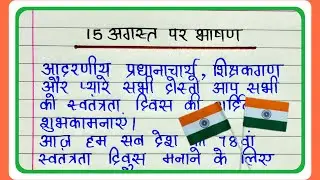 15 अगस्त पर भाषण
आदरणीय प्रधानाचार्य, शिक्षकगण
और प्यारे सभी दोस्तों आप सभी
को स्वतंत्रता दिवस की
शुभकामनाएं।
आज हम सब देश 78वां
स्वतंत्रता दिवस मनाने के लिए